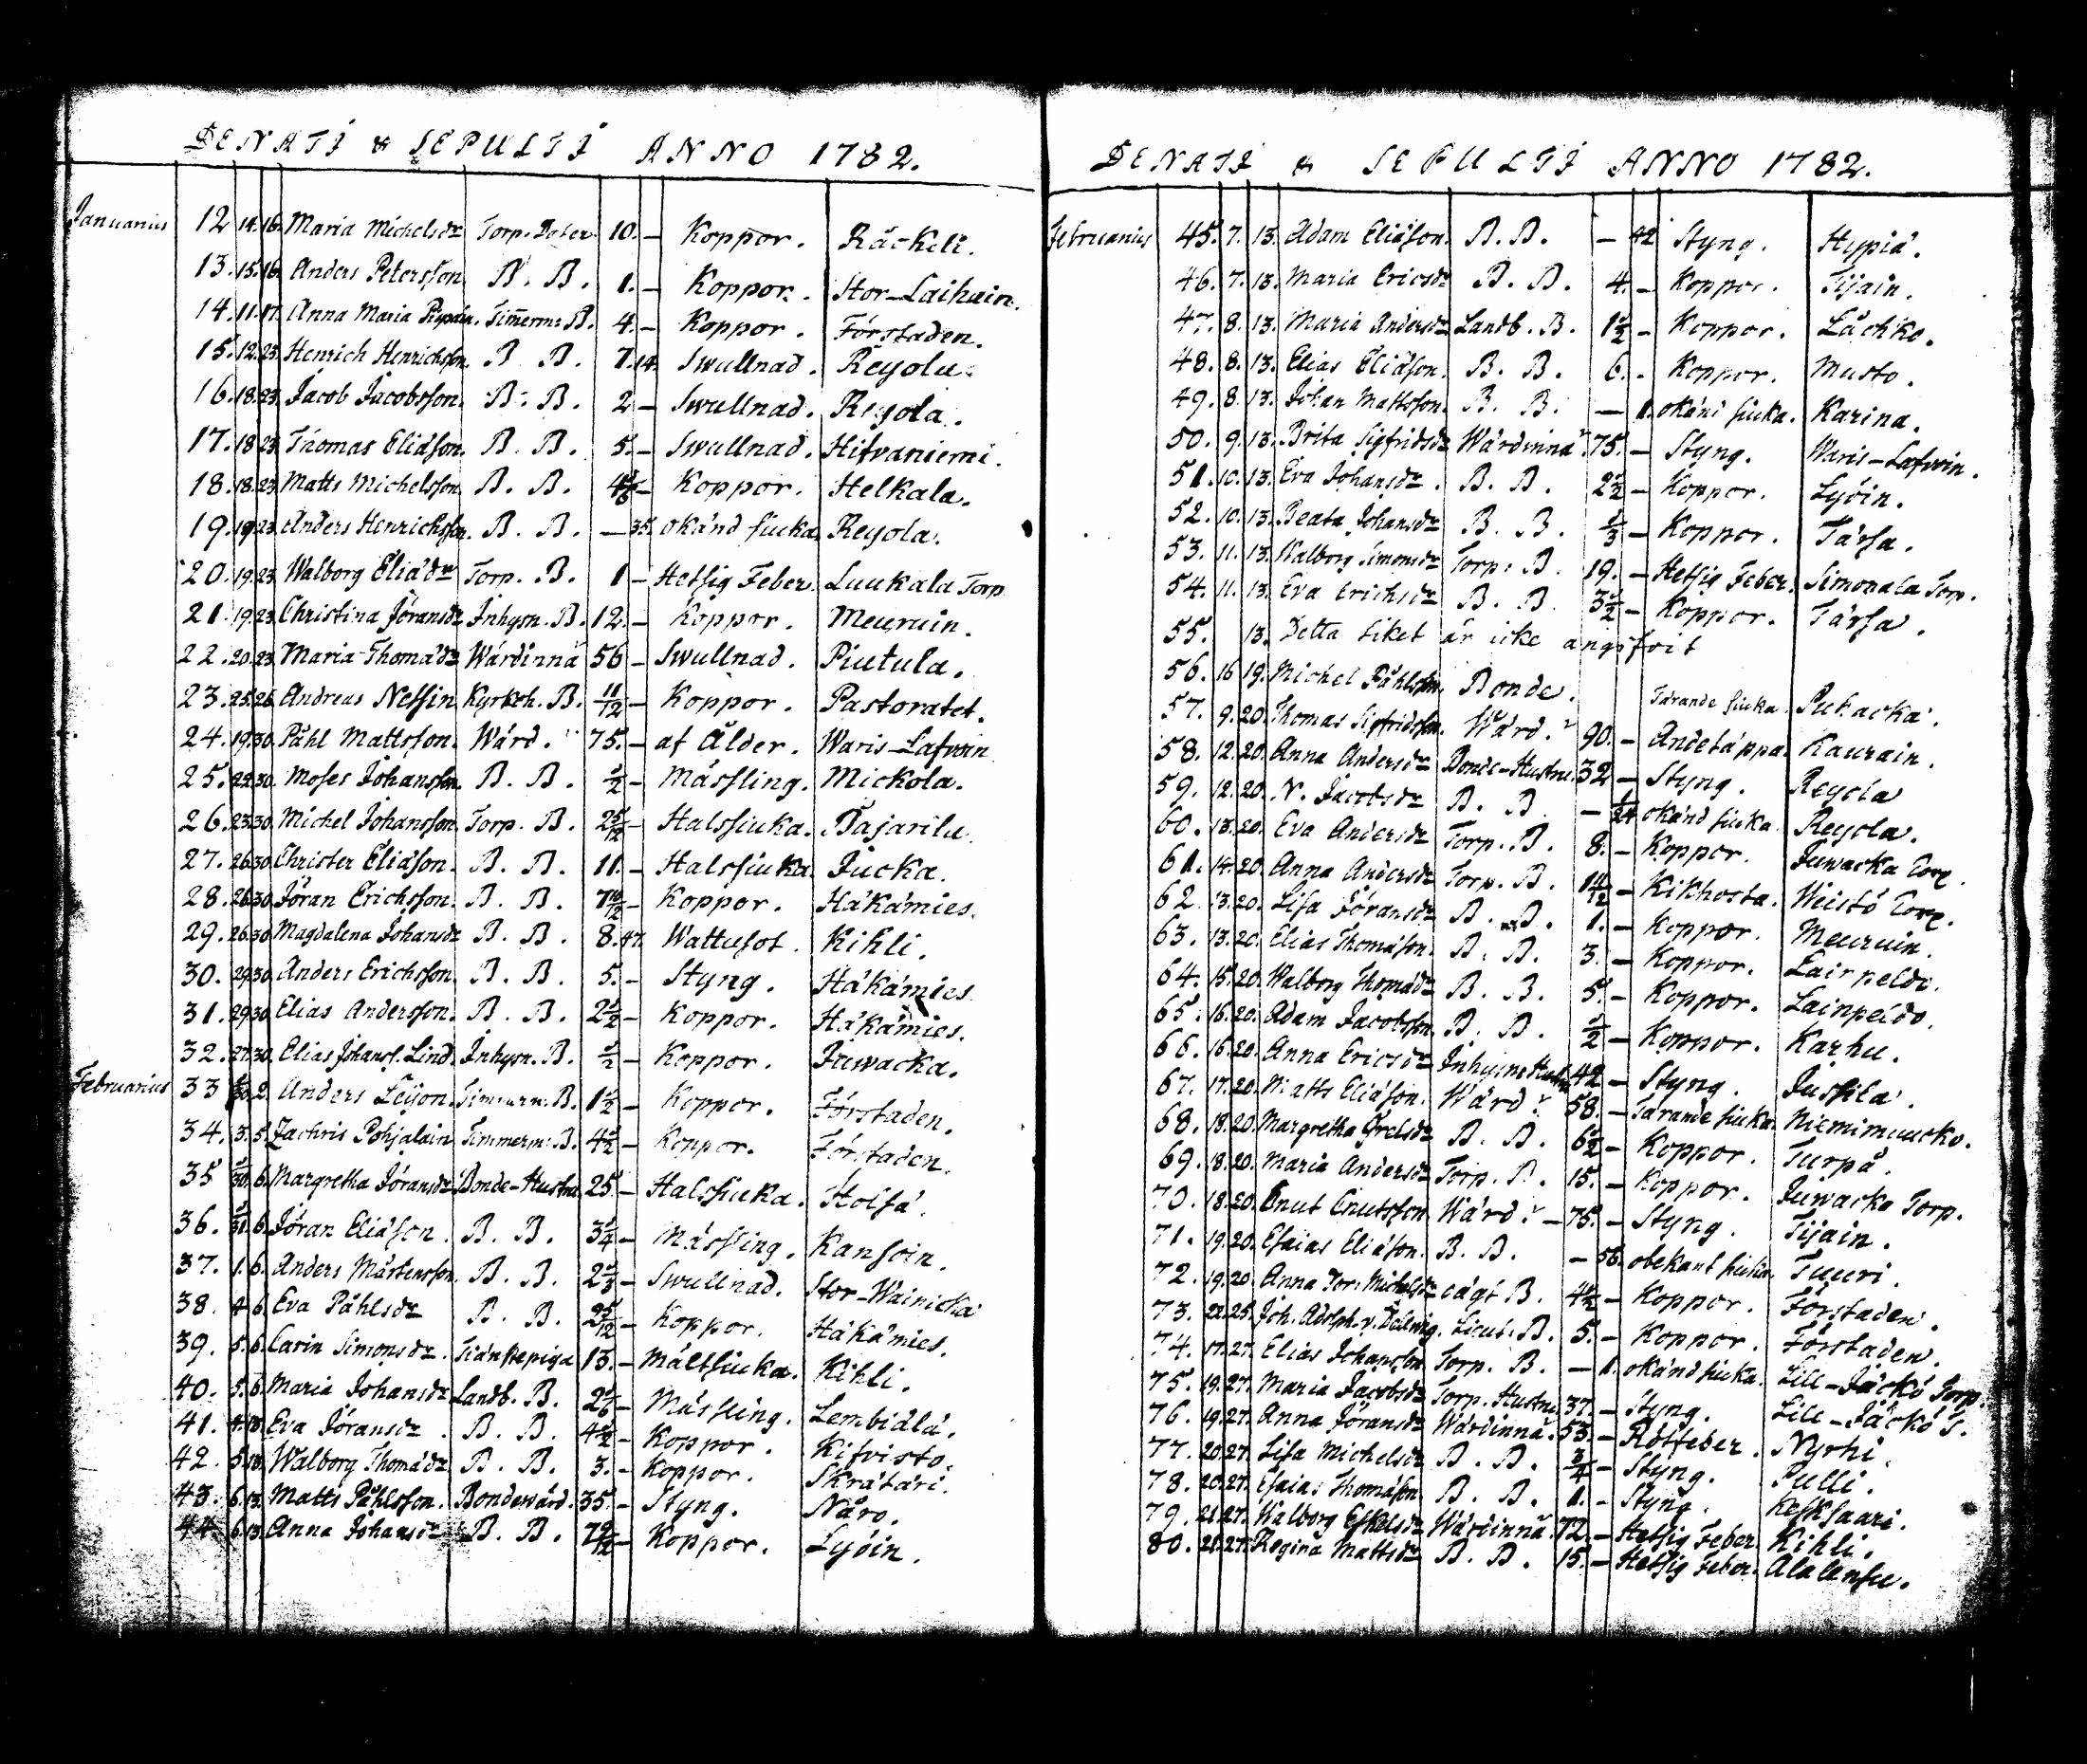 DENATI & SEPULTI ANNO 1782.
Januarius 12 14. 16. Maria Michelsdr Torp. Doter 10. – Koppor. Räckeli.
13. 15. 16. Anders Petersson B. B. 1. – Koppor. Stor-Laihain.
14. 11. 17. Anna Maria Timerm: B. 4. – Koppor. Förstaden.
15. 12. 23. Henrich Henrichsson. B. B. 7. 14. Swullnad. Reyola.
16. 18. 23. Jacob Jacobsson. B. B. 2 – Swullnad. Reyola.
17. 18 23. Thomas Eliäson. B. B. 5. – Swullnad. Hifvaniemi.
18. 18. 23 Matts Michelsson. B. B. – Koppor. Helkala.
19. 19 23 Anders Henrichsson. B. B. – 35. okänd siuka. Reyola.
20. 19. 23 Walborg Eliädr Torp. B. 1 – Hetsig Feber Luukala Torp
21. 19. 23. Christina Jöransdr Inhysn. B. 12. – Koppor. Meuruin.
22. 20. 23. Maria Thomädr Wärdinnä 56 – Swullnad. Piutula.
23. 25. 26. Andreas Nessin Kyrkoh. B. 11/12 – Koppor. Pastoratet.
24. 19. 30. Påhl Mattsson. Wärd. 75. – af Ålder. Waris-Lafwin
25. 22. 30. Moses Johansson. B. B. 1/2 – Mässling. Mickola.
26. 23. 30. Michel Johansson. Torp. B. 2 5/12 – Halssiuka. Bajarila.
27. 26. 30. Christer Eliäson. B. B. 11. – Halssiuka. Jucka.
28. 26. 30. Jöran Erichsson. B. B. 7 10/12 – Koppor. Häkämies.
29. 26. 30 Magdalena Johansdr B. B. 8. 47. Wattusot. Kihli.
30. 29. 30. Anders Erichsson. B. B. 5. – Styng. Häkämies.
31. 29. 30. Elias Andersson. B. B. 2 1/2 – Koppor. Häkämies.
32. 27. 30. Elias Johanss. Lind. Inhysn. B. 1/2 – Koppor. Juwacka.
Februarius 33 2. Anders Leijon. Timmerm. B. 1 1/2 – Koppor. Förstaden.
34. 3. 5. Zachris Pohjalain Timmerm: B. 4 1/2 – Koppor. Förstaden.
35 30. 6. Margretha Jöransdr Bonde-Hustru 25. – Halssiuka. Holsä.
36. 31. 6. Jöran Eliäson. B. B. 3 1/4 – Mässling. Kansoin.
37. 1. 6. Anders Mårtensson. B. B. 2 1/3 – Swullnad. Stor-Wainicka
38. 4 6. Eva Påhlsdr B. B. 2 5/12 – Koppor. Häkämies.
39. 5. 6. Carin Simonsdr. Tiänstepiga 13. – Mältsiuka. Kihli.
40. 5. 6. Maria Johansdr Landb. B. 2 1/6 – Mässling. Lembiälä.
41. 4. 13. Eva Jöransdr. B. B. 4 1/2 – Koppor. Kifvisto.
42. 5. 13. Walborg Thomädr B. B. 3. – Koppor. Skrätäri.
43. 6. 13. Matts Påhlsson. Bondewärd. 35. – Styng. Näro.
44. 6. 13. Anna Johansdr B. B. – Koppor. Lyöin.
DENATI & SEPULTI ANNO 1782.
Februarius 45. 7. 13. Adam Eliäson. B. B. – 42 Styng. Hyypiä.
46. 7. 13. Maria Ericsdr B. B. 4. – Koppor. Tijain.
47. 8. 13. Maria Andersdr Landb. B. 1 1/2 – Koppor. Läckko.
48. 8. 13. Elias Eliäson. B. B. 6. – Koppor. Musto.
49. 8. 13. Johan Mattsson. B. B. – 1. okänd siuka. Karina.
50. 9. 13. Brita Sigfridsdr Wärdinna 75. – Styng. Waris-Lafwin.
51. 10. 13. Eva Johansdr. B. B. 2 1/2 – Koppor. Lyöin.
52. 10. 13. Beata Johansdr B. B. 1/3 – Koppor. Tärsa.
53. 11. 13. Walborg Simonsdr Torp: B. 19. – Hetsig Feber. Simonala Torp.
54. 11. 13. Eva Erichsdr B. B. 3 1/2 – Koppor. Tärsa.
55. 13. Detta liket är icke angifvit
56. 16 19. Michel Påhlsson. Bonde. Tärande siuka. Puhacka.
57. 9. 20. Thomas Sigfridsson. Wärd. 90. – Andetäppa. Kaurain.
58. 12. 20. Anna Andersdr Bonde-Hustru 32 – Styng. Reyola
59. 12. 20. N. Jacobsdr B. B. – 1/24 okänd siuka. Reyola.
60. 13. 20. Eva Andersdr Torp. B. 8. – Koppor. Juwacka Torp.
61. 14. 20. Anna Andersdr Torp. B. – Kikhosta. Weistö Torp.
62. 13. 20. Lisa Jöransdr B. B. 1. – Koppor. Meuruin.
63. 13. 20. Elias Thomäson. B. B. 3. – Koppor. Lainpeldo.
64. 15. 20. Walborg Thomädr B. B. 5. – Koppor. Lainpeldo.
65. 16. 20. Adam Jacobsson. B. B. 1/2 – Koppor. Karhu.
66. 16. 20. Anna Ericsdr Inhysne Hustru 42 – Styng. Jussila.
67. 17. 20. Matts Eliäson. Wärd. 58. – Tärande siuka. Niemimucko.
68. 18. 20. Margretha B. B. 6 1/2 – Koppor. Turpä.
69. 18. 20. Maria Andersdr Torp. B. 15. – Koppor. Juwacka Torp.
70. 18. 20. Cnut Cnutsson Wärd. – 75. – Styng. Tijain.
71. 19. 20. Esaias Eliäson. B. B. – 56. obekant siuka. Tuuri.
72. 19. 20. Anna Dor: Michelsdr oägt B. 4 1/2 – Koppor. Förstaden.
73. 22. 25. Joh. Adolph. v. Lieut: B. 5. – Koppor. Förstaden.
74. 17. 27. Elias Johansson Torp. B. – 1. okänd siuka. Lill-Jäckö Torp.
75. 19. 27. Maria Jacobsdr Torp. Hustru 37. – Styng. Lill-Jäckö T.
76. 19. 27. Anna Jöransdr Wärdinnä. 53. – Rötfeber. Nyrhi.
77. 20. 27. Lisa Michelsdr B. B. 3/4 – Styng. Pulli.
78. 20. 27. Esaias Thomäson B. B. 1. – Styng. Kesksaari.
79. 21. 27. Walborg Eskelsdr Wärdinnä. 72. – Hetsig Feber. Kihli.
80. 21. 27. Regina Mattsdr B. B. 15. – Hetsig Feber. Alalensu.